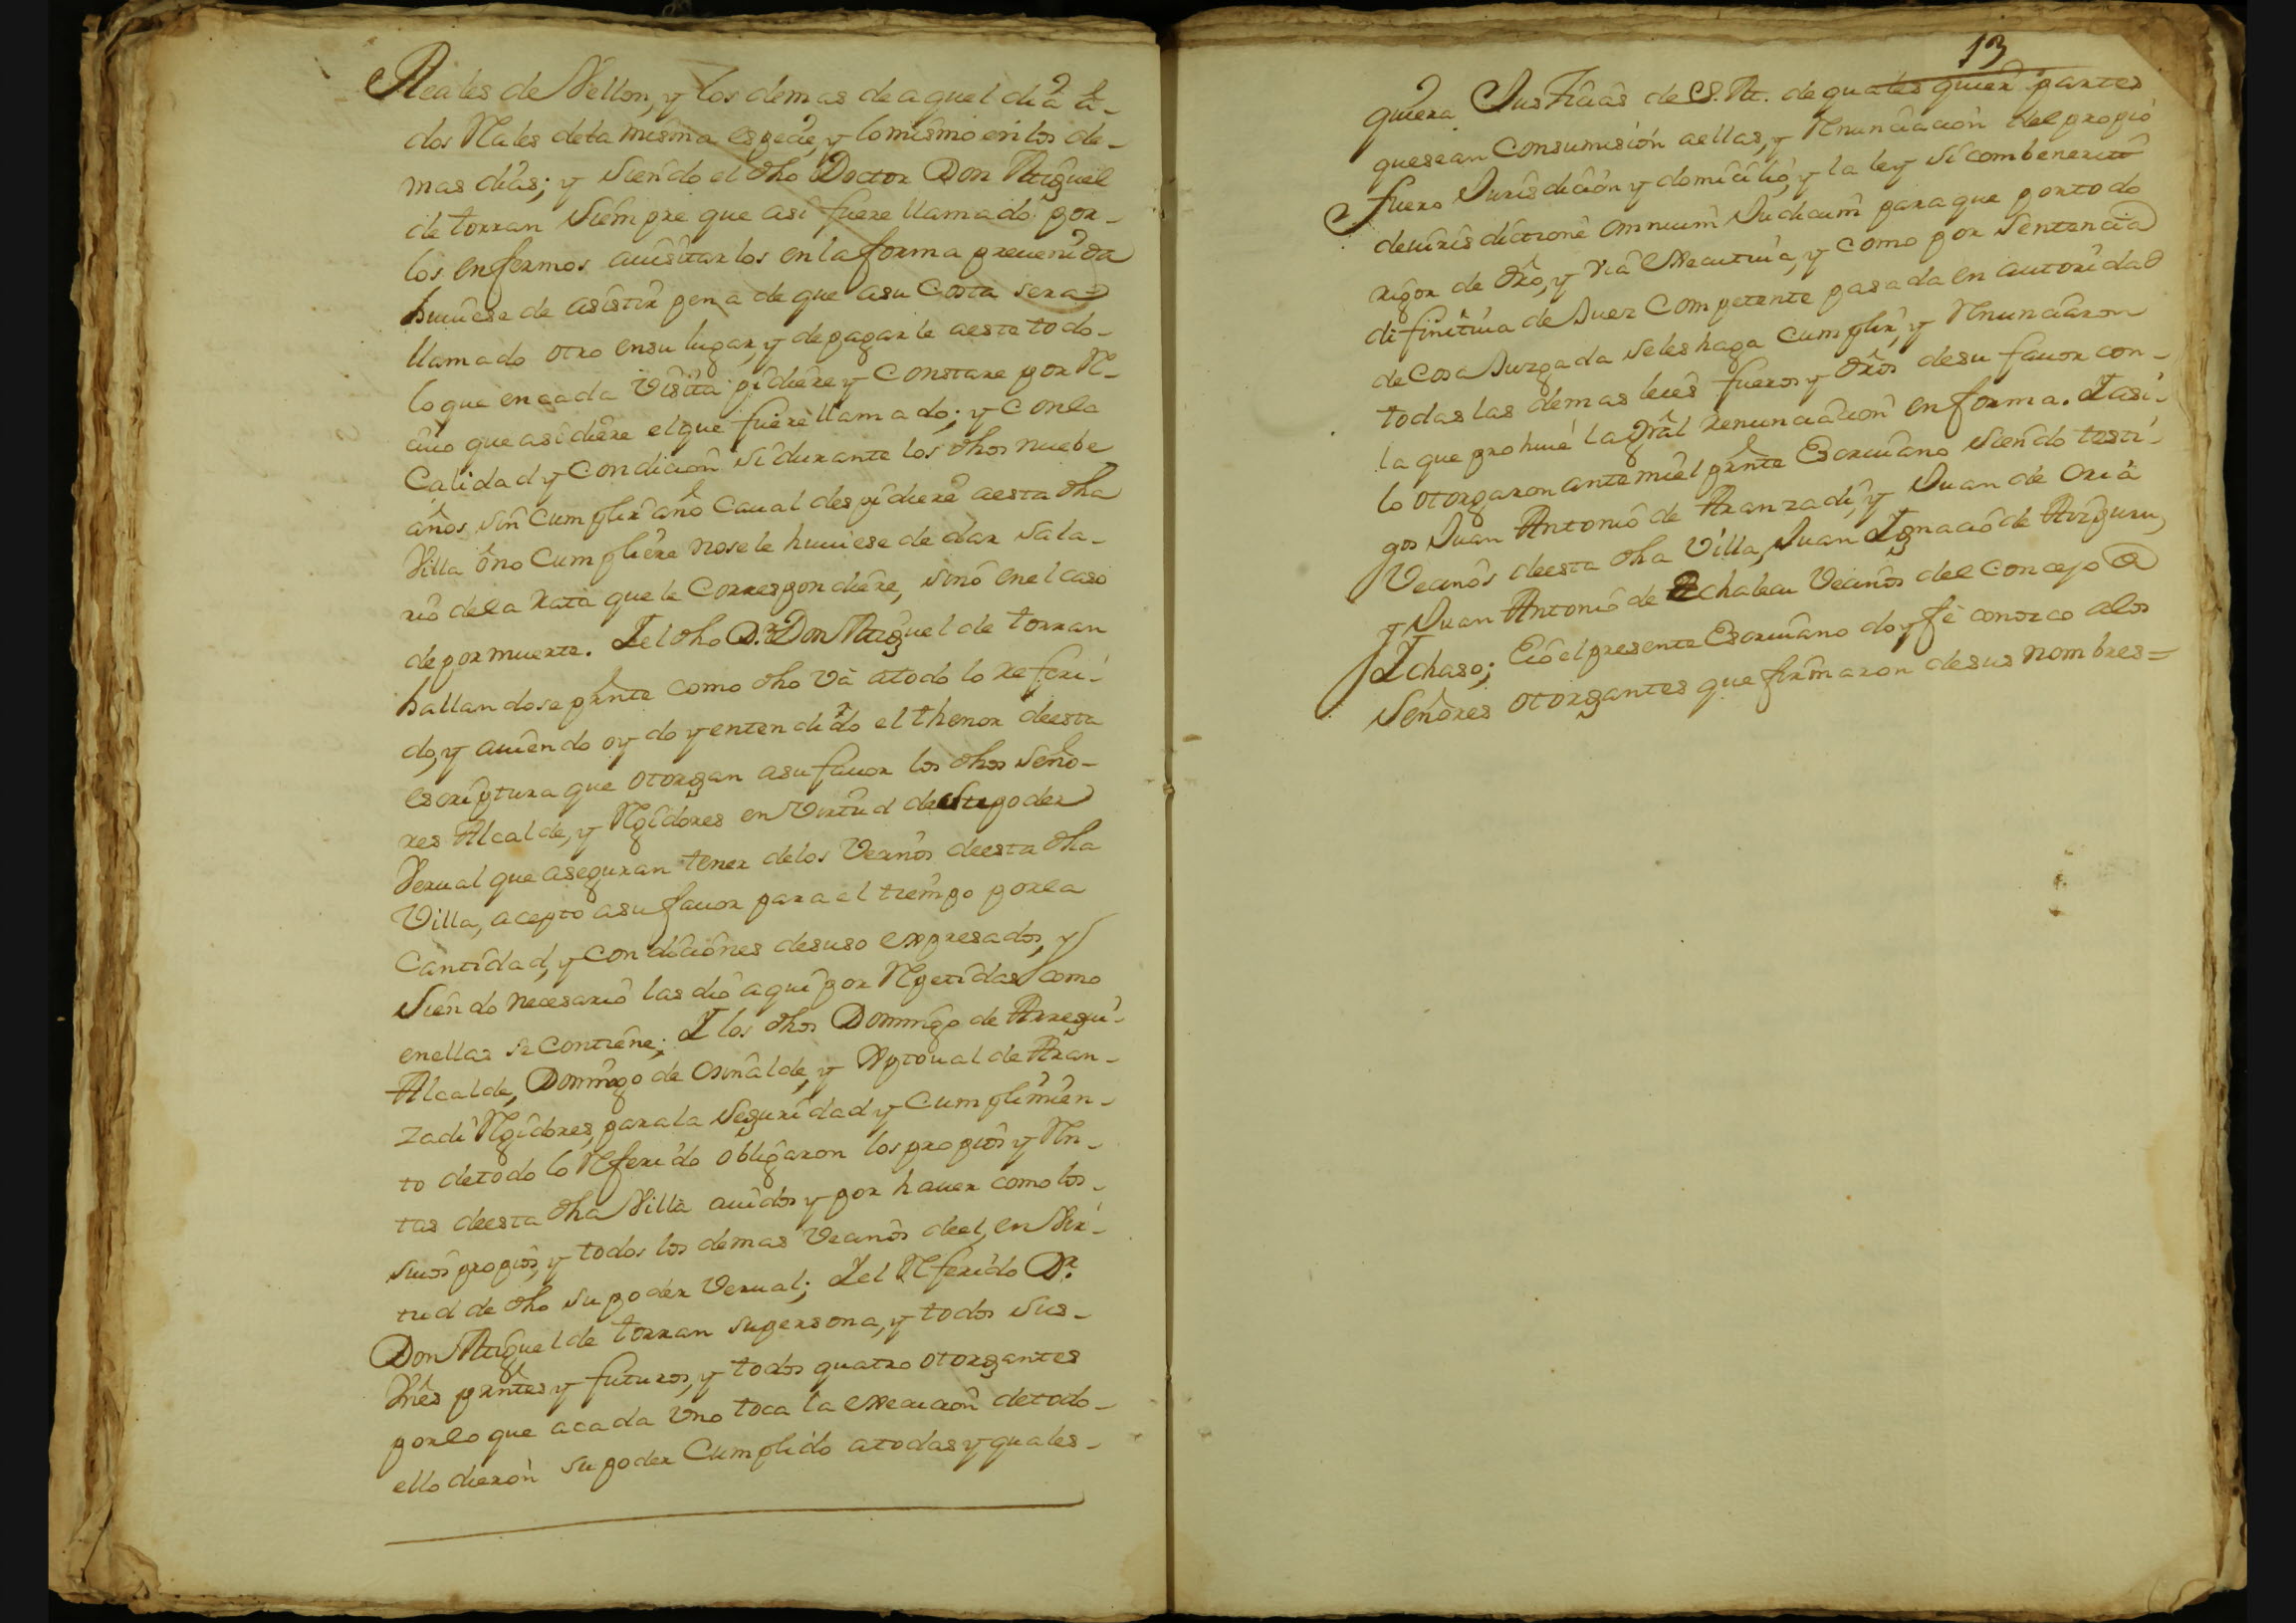 Reales de Vellon, y los demas de aquel dia â-
dos Rales dela misma especie, y lo mismo en los de-
mas dias; y Siendo el dho Doctor Don Miguel
de torran Siempre que asi fuere llamado por-
los enfermos auisitarlos en la forma preuenida
huuiese de asistir pena de que asu Costa sera
llamado otro ensu lugar, y de pagarle aeste todo-
lo que encada Visita pidiere y Constare por R-
ciuo que asi diere elque fuere llamado; y Conla
Calidad y Condicion Si durante los dhos nuebe
años, sin Cumplir año Caual despidiere aesta dha
Villa ô no Cumpliere nosele huuiese de dar Sala-
rio dela rata que le Correspondiere, sino enel caso
de por muerte. I el dho D.r Don Miguel de torran
hallandose prnte como dho Va atodo lo referi-
do, y auiendo oydo y entendido el thenor deesta
escriptura que otorgan asu fauor los dhos Seño-
res Alcalde, y Rgidores en Virtud de su poder
Verual que aseguran tener delos Vecinos deesta dha
Villa, acepto asu fauor para el tiempo porla
Cantidad, y Condiciones desuso expresados, y
Siendo necesario las dio aqui por Rpetidas como
enellas se Contiene; I los dhos Domingo de Arregui-
Alcalde, Domingo de Osinalde, y Xptoual de Aran-
zadi Rgidores, para la Seguridad y Cumplimien-
to detodo lo Rferido obligaron los propios y Rn-
tas deesta dha Villa auidos y por hauer como los-
suios propios, y todos los demas Vecinos deel, en Vir-
tud de dho su poder Verual; I el Rferido D.r
Don Miguel de torran su persona, y todos sus-
Vnes prntes y futuros, y todos quatro otorgantes
porlo que acada Vno toca la execucion detodo-
ello dieron su poder Cumplido atodas y quales-
13
quiera Justicias de S. M. de quales quier partes
que sean Consumision aellas, y Rnunciacion del propio
fuero Jurisdicion y domicilio, y la ley Si combenerit
de iurisdictione omnium Judicum para que por todo
rigor de dro, y via executiua, y como por Sentencia
difinitiua de Juez Competente pasada en autoridad
de Cosa Juzgada seles haga cumplir, y Rnunciaron
todas las demas leies fueros y dros desu fauor con-
la que prohiue la gral renunciacion enforma. I asi-
lo otorgaron ante mi el prnte Escriuano siendo testi-
gos Juan Antonio de Aranzadi, y Juan de Oria
Vecinos deesta dha Villa, Juan Ignacio de Aizguru,
y Juan Antonio de Achaleu Vecinos del Concejo de
Ichaso; Eio el presente Escriuano doy fe conozco alos
Señores otorgantes que firmaron desus nombres=